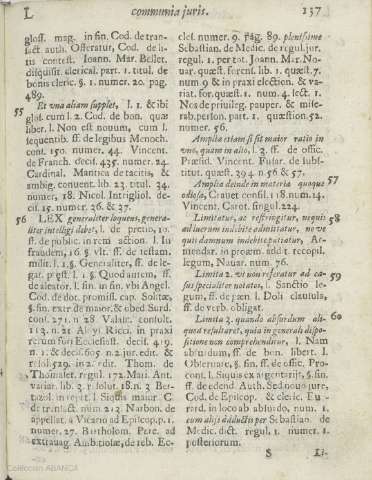 L
communia juris.
137
gloss. mag. in fin. Cod. de tran-
sact auth. Offeratur, Cod. de li-
tis contest. Ioann. Mar. Bellet.
disquisit. clerical. part. 1. titul. de
bonis cleric. §. 1. numer. 20. pag.
489.
55
Et una aliam supplet, l. 1. & ibi
glos. cum l. 2. Cod. de bon. quæ
liber. l. Non est novum, cum l.
sequentib. ff. de legibus Menoch.
cont. 150. numer. 44. Vincent.
de Franch. decis. 435. numer. 24.
Cardinal. Mantica de tacitis, &
ambig. convent. lib. 23. titul. 34.
numer, 18. Nicol. Intrigliol. de-
cis. 15. numer. 26. & 27.
56
LEX generaliter loquens, genera-
liter intelligi debet, l. de pretio, 10.
ff. de public. in rem action. l. In
fraudem, 16. § vlt. ff. de testam.
milit. l. 1. §. Generaliter, ff. de le-
gat. præst. l. 1. §. Quod autem, ff.
de aleator. l. sin. in fin. vbi Angel.
Cod. de dot. promiss. cap. Solitæ,
§. fin. extr de maior. & obed Surd.
cons. 271. n. 28 Valatir. consult.
113. n. 21 Aloyi Ricci. in praxi
rerum fori Ecclesiast. decis. 419.
n. 1. & decis. 605 n. 2. jur. edit. &
resol. 519. in 2. edit. Thom. de
Thomaset. regul. 172. Mari. Ant.
variar. lib. 3. resolut. 18. n. 3 Ber-
tazol. in repet. l Siquis maior. C
de transact num 213. Narbon. de
appellat. à Vicario ad Episcop. p. 1.
numer. 27. Bartholom. Pere. ad
extravag. Ambitiosæ, de reb. Ec-
cles. numer. 9. pag. 89. plenissimè
Sebastian. de Medic. de regul. jur.
regul. 1. per tot. Joann. Mar. No-
uar. quæst. forens. lib. 1. quæst. 7.
num 9 & in praxi election. & va-
riat. for. quæst. 1. num. 4. sect. 1.
Nos de privileg. pauper. & mise-
rab. person. part. 1. quæstion. 52.
numer. 56.
Amplia etiam si sit maior ratio in
uno, quam in alio, l. 3. ff. de offic.
Præsid. Vincent. Fusar. de subs-
titut. quæst. 394. n. 56 & 57.
Amplia deinde in materia quoque
57
odiosa, Cravet consil. 118. num. 14.
Vincent. Carot. singul. 224.
Limitatur, ac restringitur, nequis
58
ad lucrum indebitè admittatur, no ve
quti damnum indebitè patiatur, Ac-
mendar. in proæm. add t. recopil.
legum, Nauar. num. 76.
Limita 2. vi non referatur ad ca-
59
sus specialiter notatos, l. Sanctio le-
gum, ff. de pæn. l. Doli clausula,
ff. de verb. obligat.
Limita 3. quando absurdum ali-
60
quod resultaret, quia in generali dispo-
sitione non comprehenditur, l. Nam
absurdum, ff. de bon. libert. l.
Observare, §. fin. ff. de offic. Pro-
consf. l. Siquis ex argentarijs, § fin.
ff. de edend. Auth. Sed novo jure,
Cod. de Episcop. & cleric. Eu-
rard. in loco ab absurdo, num. 1.
cum alijs adductis per Sebastian. de
Medic. dict. regul. 1. numer. 1.
posteriorum.
S
Li-
Colección ABANCA